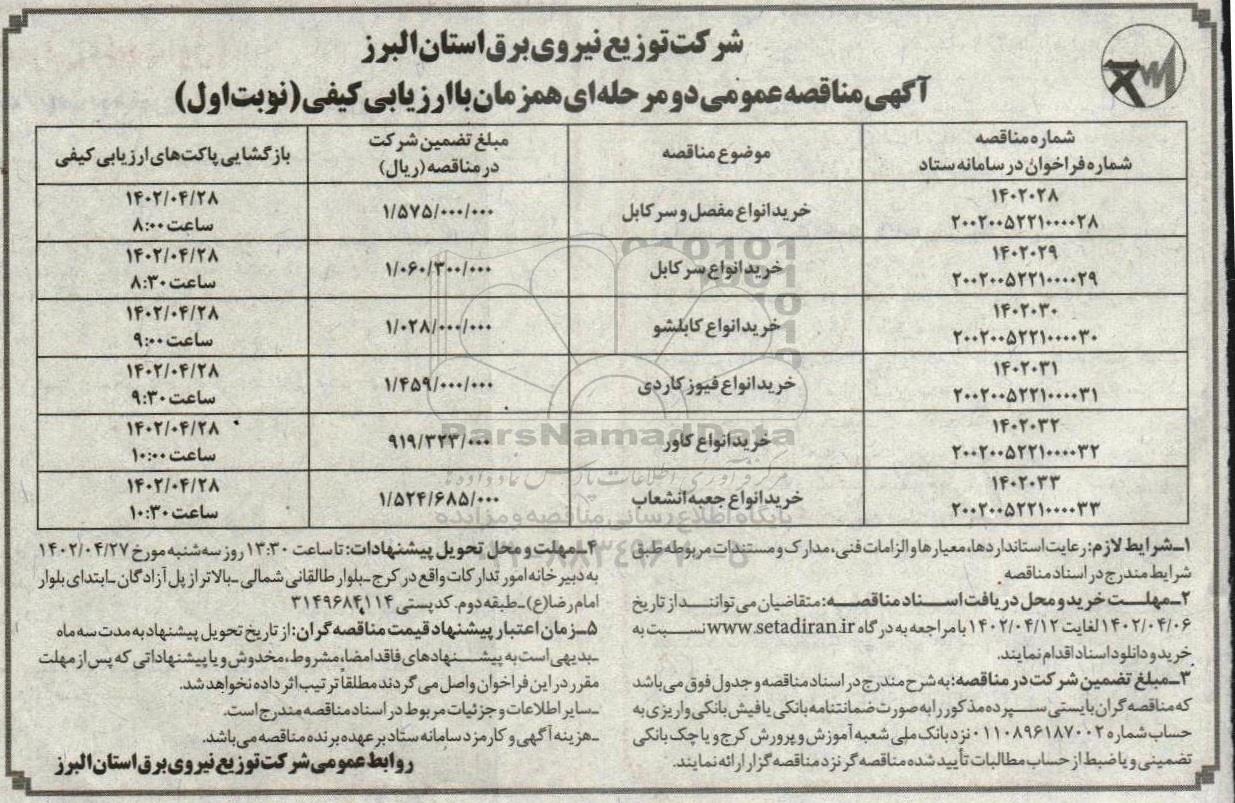 شرکت توزیع نیروی برق استان البرز
آگهی مناقصه عمومی دو مرحله‌ای همزمان با ارزیابی کیفی (نوبت اول)
شماره مناقصه
شماره فراخوان در سامانه ستاد
موضوع مناقصه
مبلغ تضمین شرکت
در مناقصه (ریال)
بازگشایی پاکت‌های ارزیابی کیفی
۱۴۰۲۰۲۸
۲۰۰۲۰۰۵۲۲۱۰۰۰۰۲۸
خرید انواع مفصل و سرکابل
۱/۵۷۵/۰۰۰/۰۰۰
۱۴۰۲/۰۴/۲۸
ساعت ۸:۰۰
۱۴۰۲۰۲۹
۲۰۰۲۰۰۵۲۲۱۰۰۰۰۲۹
خرید انواع سرکابل
۱/۰۶۰/۳۰۰/۰۰۰
۱۴۰۲/۰۴/۲۸
ساعت ۸:۳۰
۱۴۰۲۰۳۰
۲۰۰۲۰۰۵۲۲۱۰۰۰۰۳۰
خرید انواع کابلشو
۱/۰۲۸/۰۰۰/۰۰۰
۱۴۰۲/۰۴/۲۸
ساعت ۹:۰۰
۱۴۰۲۰۳۱
۲۰۰۲۰۰۵۲۲۱۰۰۰۰۳۱
خرید انواع فیوز کاردی
۱/۴۵۹/۰۰۰/۰۰۰
۱۴۰۲/۰۴/۲۸
ساعت ۹:۳۰
۱۴۰۲۰۳۲
۲۰۰۲۰۰۵۲۲۱۰۰۰۰۳۲
خرید انواع کاور
۹۱۹/۳۲۳/۰۰۰
۱۴۰۲/۰۴/۲۸
ساعت ۱۰:۰۰
۱۴۰۲۰۳۳
۲۰۰۲۰۰۵۲۲۱۰۰۰۰۳۳
خرید انواع جعبه انشعاب
۱/۵۲۴/۶۸۵/۰۰۰
۱۴۰۲/۰۴/۲۸
ساعت ۱۰:۳۰
ParsNamadData
پایگاه اطلاع رسانی مناقصه و مزایده
۱ـ شرایط لازم: رعایت استانداردها، معیارها و الزامات فنی، مدارک و مستندات مربوطه طبق
شرایط مندرج در اسناد مناقصه
۲ـ مهلت خرید و محل دریافت اسناد مناقصه: متقاضیان می‌توانند از تاریخ
۱۴۰۲/۰۴/۰۶ لغایت ۱۴۰۲/۰۴/۱۲ با مراجعه به درگاه www.setadiran.ir نسبت به
خرید و دانلود اسناد اقدام نمایند.
۳ـ مبلغ تضمین شرکت در مناقصه: به شرح مندرج در اسناد مناقصه و جدول فوق می‌باشد
که مناقصه گران بایستی سپرده مذکور را به صورت ضمانتنامه بانکی یا فیش بانکی واریزی به
حساب شماره ۰۱۱۰۸۹۶۱۸۷۰۰۲ نزد بانک ملی شعبه آموزش و پرورش کرج و یا چک بانکی
تضمینی و یا ضبط از حساب مطالبات تأیید شده مناقصه گر نزد مناقصه گزار ارائه نمایند.
۴ـ مهلت و محل تحویل پیشنهادات: تا ساعت ۱۳:۳۰ روز سه شنبه مورخ ۱۴۰۲/۰۴/۲۷
به دبیرخانه امور تدارکات واقع در کرج ـ بلوار طالقانی شمالی ـ بالاتر از پل آزادگان ـ ابتدای بلوار
امام رضا(ع) ـ طبقه دوم. کد پستی ۳۱۴۹۶۸۴۱۱۴
۵ـ زمان اعتبار پیشنهاد قیمت مناقصه گران: از تاریخ تحویل پیشنهاد به مدت سه ماه
ـ بدیهی است به پیشنهادهای فاقد امضا، مشروط، مخدوش و یا پیشنهاداتی که پس از مهلت
مقرر در این فراخوان واصل می گردند مطلقاً ترتیب اثر داده نخواهد شد.
ـ سایر اطلاعات و جزئیات مربوط در اسناد مناقصه مندرج است.
ـ هزینه آگهی و کارمزد سامانه ستاد بر عهده برنده مناقصه می‌باشد.
روابط عمومی شرکت توزیع نیروی برق استان البرز